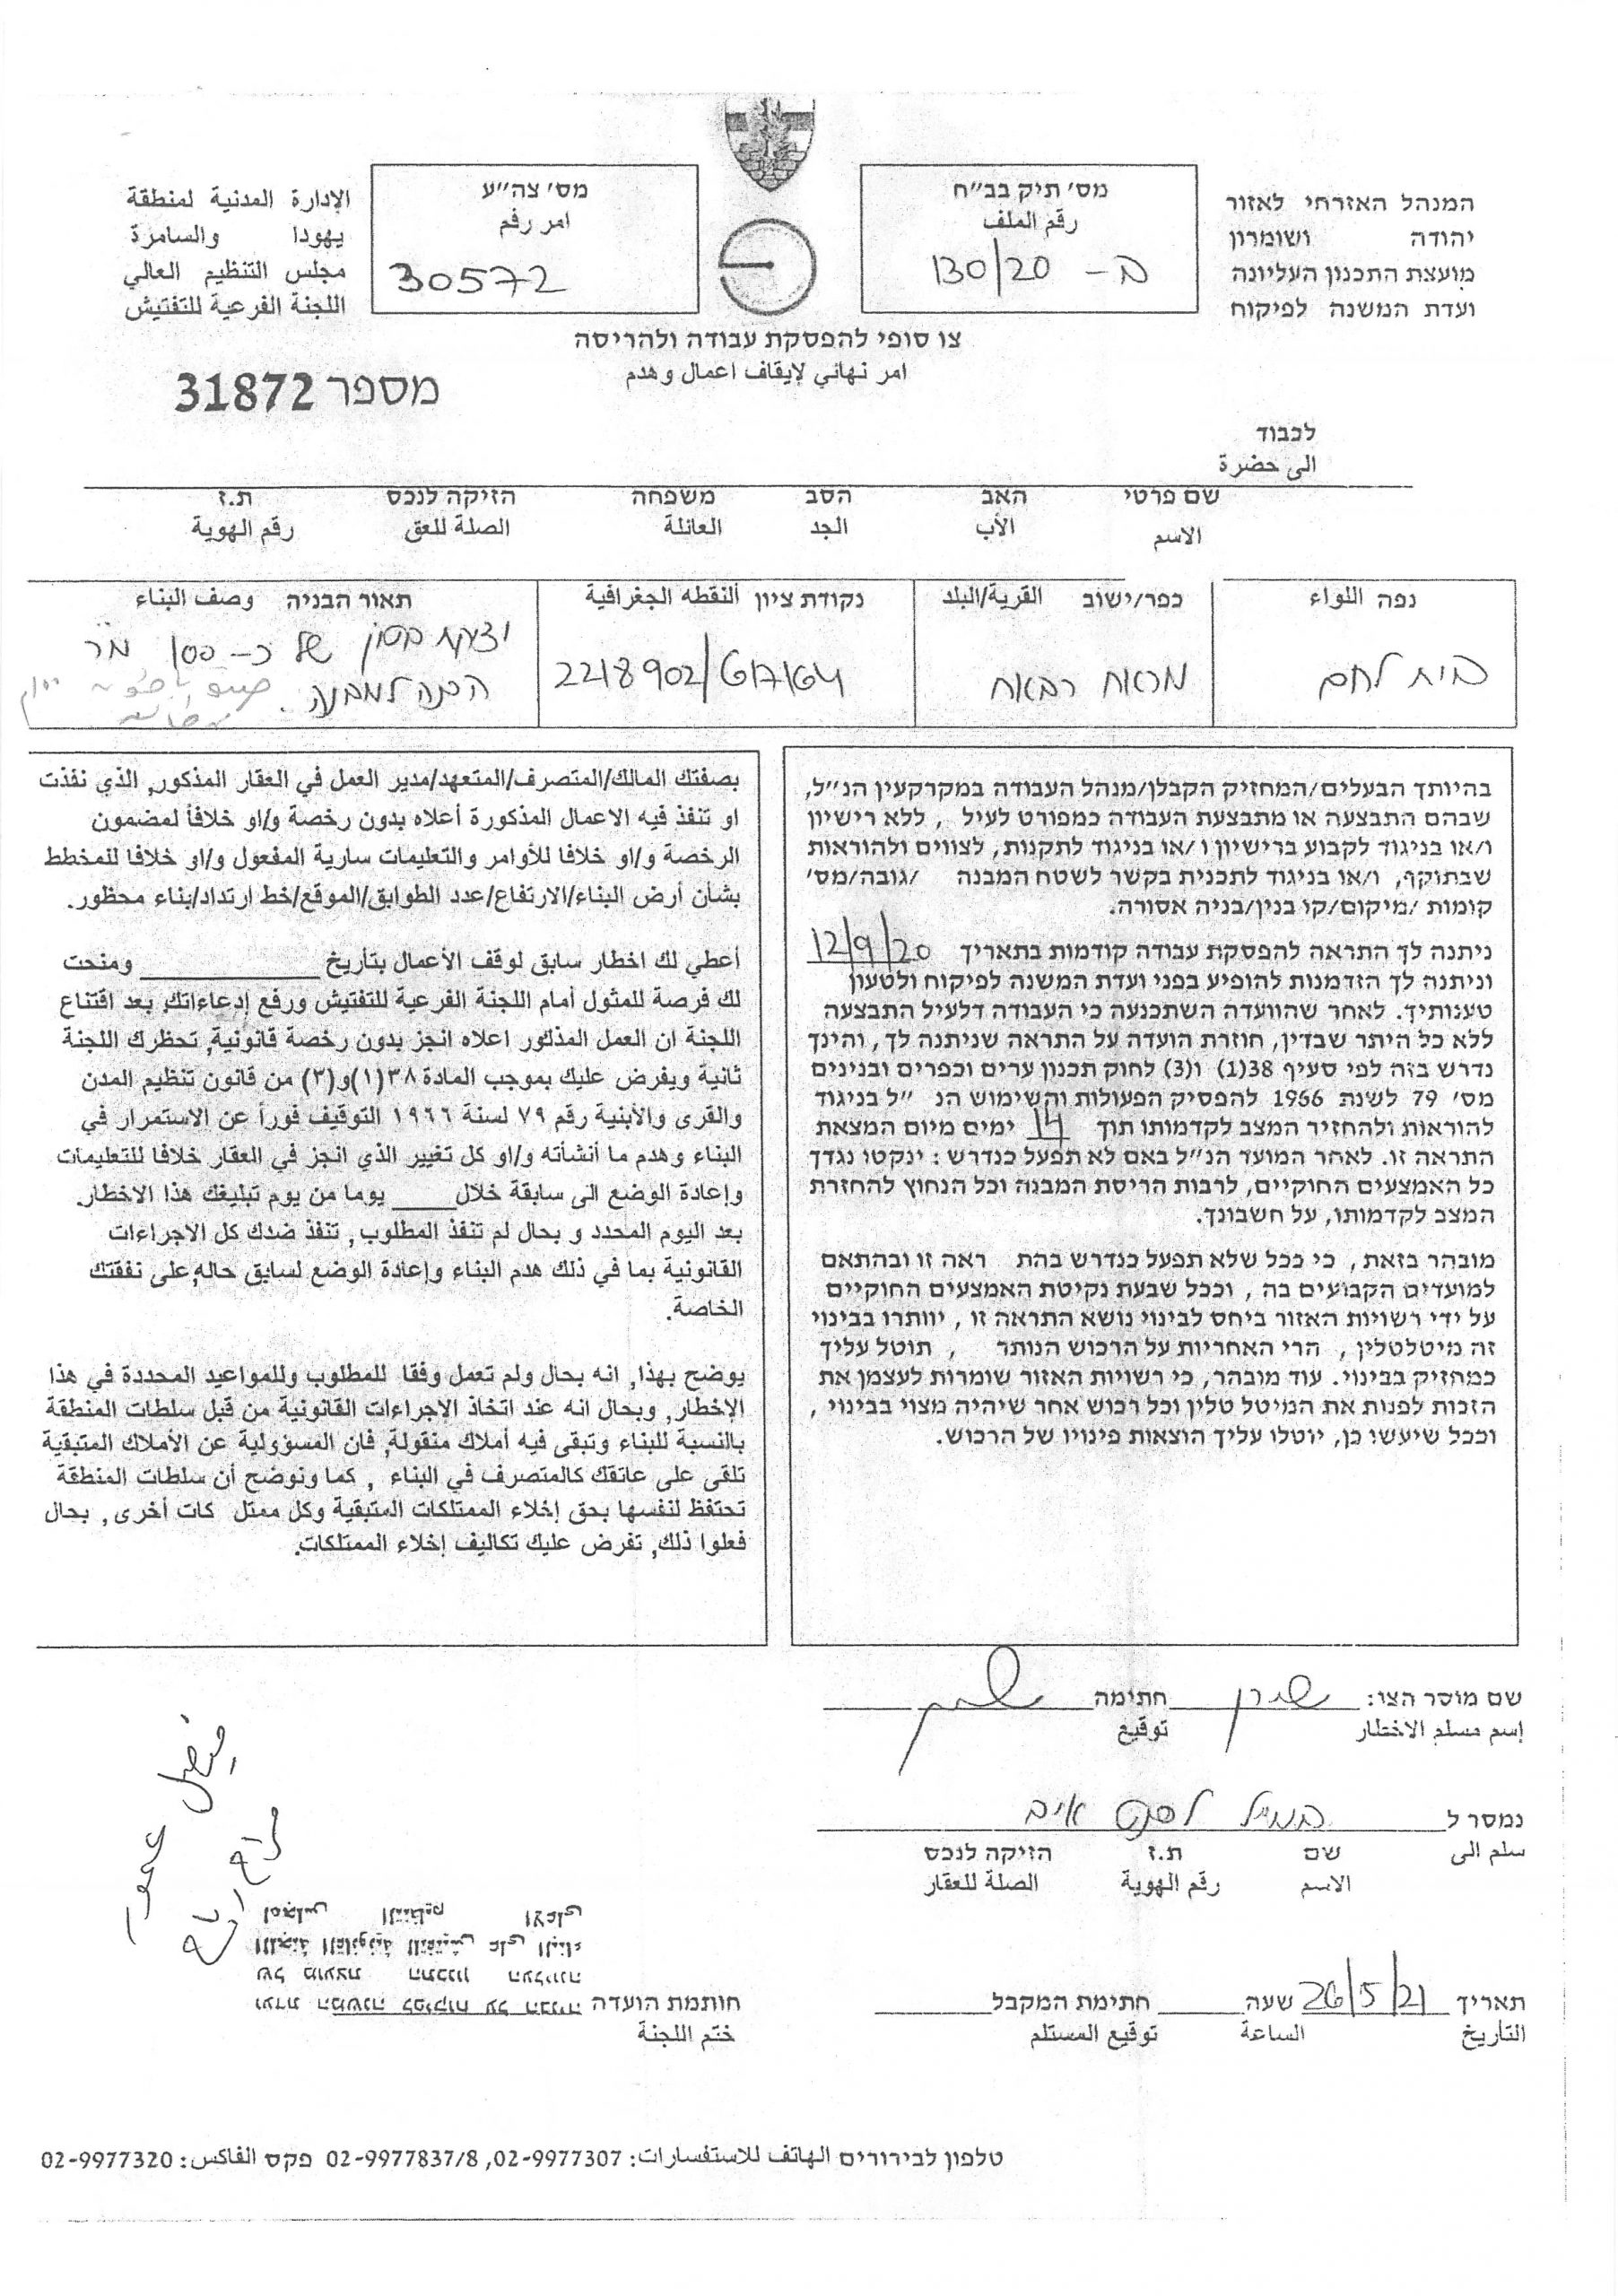 המנהל האזרחי לאזור
יהודה ושומרון
מועצת התכנון העליונה
ועדת המשנה לפיקוח
מס׳ תיק בב״ח
رقم الملف
ב- 130/20
מס׳ צה״ע
امر رقم
30572
الإدارة المدنية لمنطقة
يهودا والسامرة
مجلس التنظيم العالي
اللجنة الفرعية للتفتيش
צו סופי להפסקת עבודה ולהריסה
امر نهائي لإيقاف اعمال وهدم
מספר 31872
לכבוד
الى حضرة
שם פרטי האב הסב משפחה הזיקה לנכס ת.ז
الاسم الأب الجد العائلة الصلة للعق رقم الهوية
נפה اللواء
בית לחם
כפר/ישוב القرية/البلد
מראח רבאח
נקודת ציון ألنقطه الجغرافية
תאור הבניה وصف البناء
יציקת בטון של כ-100 מ״ר
הכנה למבנה.
בהיותך הבעלים/המחזיק הקבלן/מנהל העבודה במקרקעין הנ״ל,
שבהם התבצעה או מתבצעת העבודה כמפורט לעיל , ללא רישיון
ו/או בניגוד לקבוע ברישיון ו/או בניגוד לתקנות, לצווים ולהוראות
שבתוקף, ו/או בניגוד לתכנית בקשר לשטח המבנה /גובה/מס׳
קומות /מיקום/קו בנין/בניה אסורה.
ניתנה לך התראה להפסקת עבודה קודמות בתאריך 12/9/20
וניתנה לך הזדמנות להופיע בפני ועדת המשנה לפיקוח ולטעון
טענותיך. לאחר שהוועדה השתכנעה כי העבודה דלעיל התבצעה
ללא כל היתר שבדין, חוזרת הועדה על התראה שניתנה לך, והינך
נדרש בזה לפי סעיף 38(1) ו(3) לחוק תכנון ערים וכפרים ובנינים
מס׳ 79 לשנת 1966 להפסיק הפעולות והשימוש הנ ״ל בניגוד
להוראות ולהחזיר המצב לקדמותו תוך 14 ימים מיום המצאת
התראה זו. לאחר המועד הנ״ל באם לא תפעל כנדרש : ינקטו נגדך
כל האמצעים החוקיים, לרבות הריסת המבנה וכל הנחוץ להחזרת
המצב לקדמותו, על חשבונך.
מובהר בזאת, כי ככל שלא תפעל כנדרש בהת ראה זו ובהתאם
למועדים הקבועים בה , וככל שבעת נקיטת האמצעים החוקיים
על ידי רשויות האזור ביחס לבינוי נושא התראה זו , יוותרו בבינוי
זה מיטלטלין , הרי האחריות על הרכוש הנותר , תוטל עליך
כמחזיק בבינוי. עוד מובהר, כי רשויות האזור שומרות לעצמן את
הזכות לפנות את המיטל טלין וכל רכוש אחר שיהיה מצוי בבינוי ,
וככל שיעשו כן, יוטלו עליך הוצאות פינויו של הרכוש.
بصفتك المالك/المتصرف/المتعهد/مدير العمل في العقار المذكور, الذي نفذت
او تنفذ فيه الاعمال المذكورة أعلاه بدون رخصة و/او خلافاً لمضمون
الرخصة و/او خلافا للأوامر والتعليمات سارية المفعول و/او خلافا للمخطط
بشأن أرض البناء/الارتفاع/عدد الطوابق/الموقع/خط ارتداد/بناء محظور.
أعطي لك اخطار سابق لوقف الأعمال بتأريخ ____ ومنحت
لك فرصة للمثول أمام اللجنة الفرعية للتفتيش ورفع إدعاءاتك, بعد اقتناع
اللجنة ان العمل المذكور اعلاه انجز بدون رخصة قانونية, تحظرك اللجنة
ثانية ويفرض عليك بموجب المادة ٣٨(١)و(٣) من قانون تنظيم المدن
والقرى والأبنية رقم ٧٩ لسنة ١٩٦٦ التوقيف فوراً عن الاستمرار في
البناء وهدم ما أنشأته و/او كل تغيير الذي انجز في العقار خلافا للتعليمات
وإعادة الوضع الى سابقة خلال____ يوما من يوم تبليغك هذا الاخطار.
بعد اليوم المحدد و بحال لم تنفذ المطلوب, تنفذ ضدك كل الاجراءات
القانونية بما في ذلك هدم البناء وإعادة الوضع لسابق حاله,على نفقتك
الخاصة.
يوضح بهذا, انه بحال ولم تعمل وفقا للمطلوب وللمواعيد المحددة في هذا
الإخطار, وبحال انه عند اتخاذ الاجراءات القانونية من قبل سلطات المنطقة
بالنسبة للبناء وتبقى فيه أملاك منقولة, فان المسؤولية عن الأملاك المتبقية
تلقى على عاتقك كالمتصرف في البناء , كما ونوضح أن سلطات المنطقة
تحتفظ لنفسها بحق إخلاء الممتلكات المتبقية وكل ممتل كات أخرى, بحال
فعلوا ذلك, تفرض عليك تكاليف إخلاء الممتلكات.
שם מוסר הצו: חתימה
إسم مسلم الاخطار توقيع
נמסר ל
سلم الى
שם ת.ז הזיקה לנכס
الاسم رقم الهوية الصلة للعقار
ועדת המשנה לפיקוח על הבניה
של מועצת התכנון העליונה
תאריך 26/5/21 שעה חתימת המקבל
التاريخ الساعة توقيع المستلم
חותמת הועדה
ختم اللجنة
טלפון לבירורים الهاتف للاستفسارات: 02-9977307, 02-9977837/8 פקס الفاكس: 02-9977320